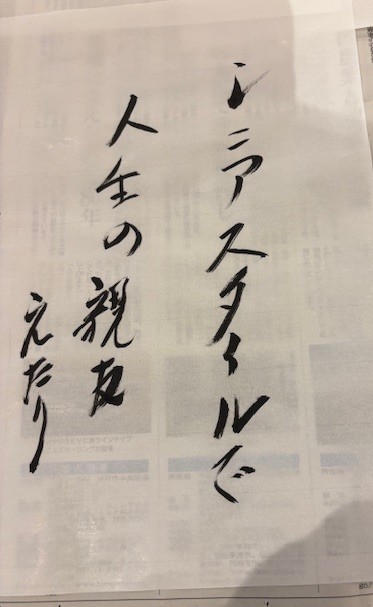 シニアスタイルで
人生の親友
えたり